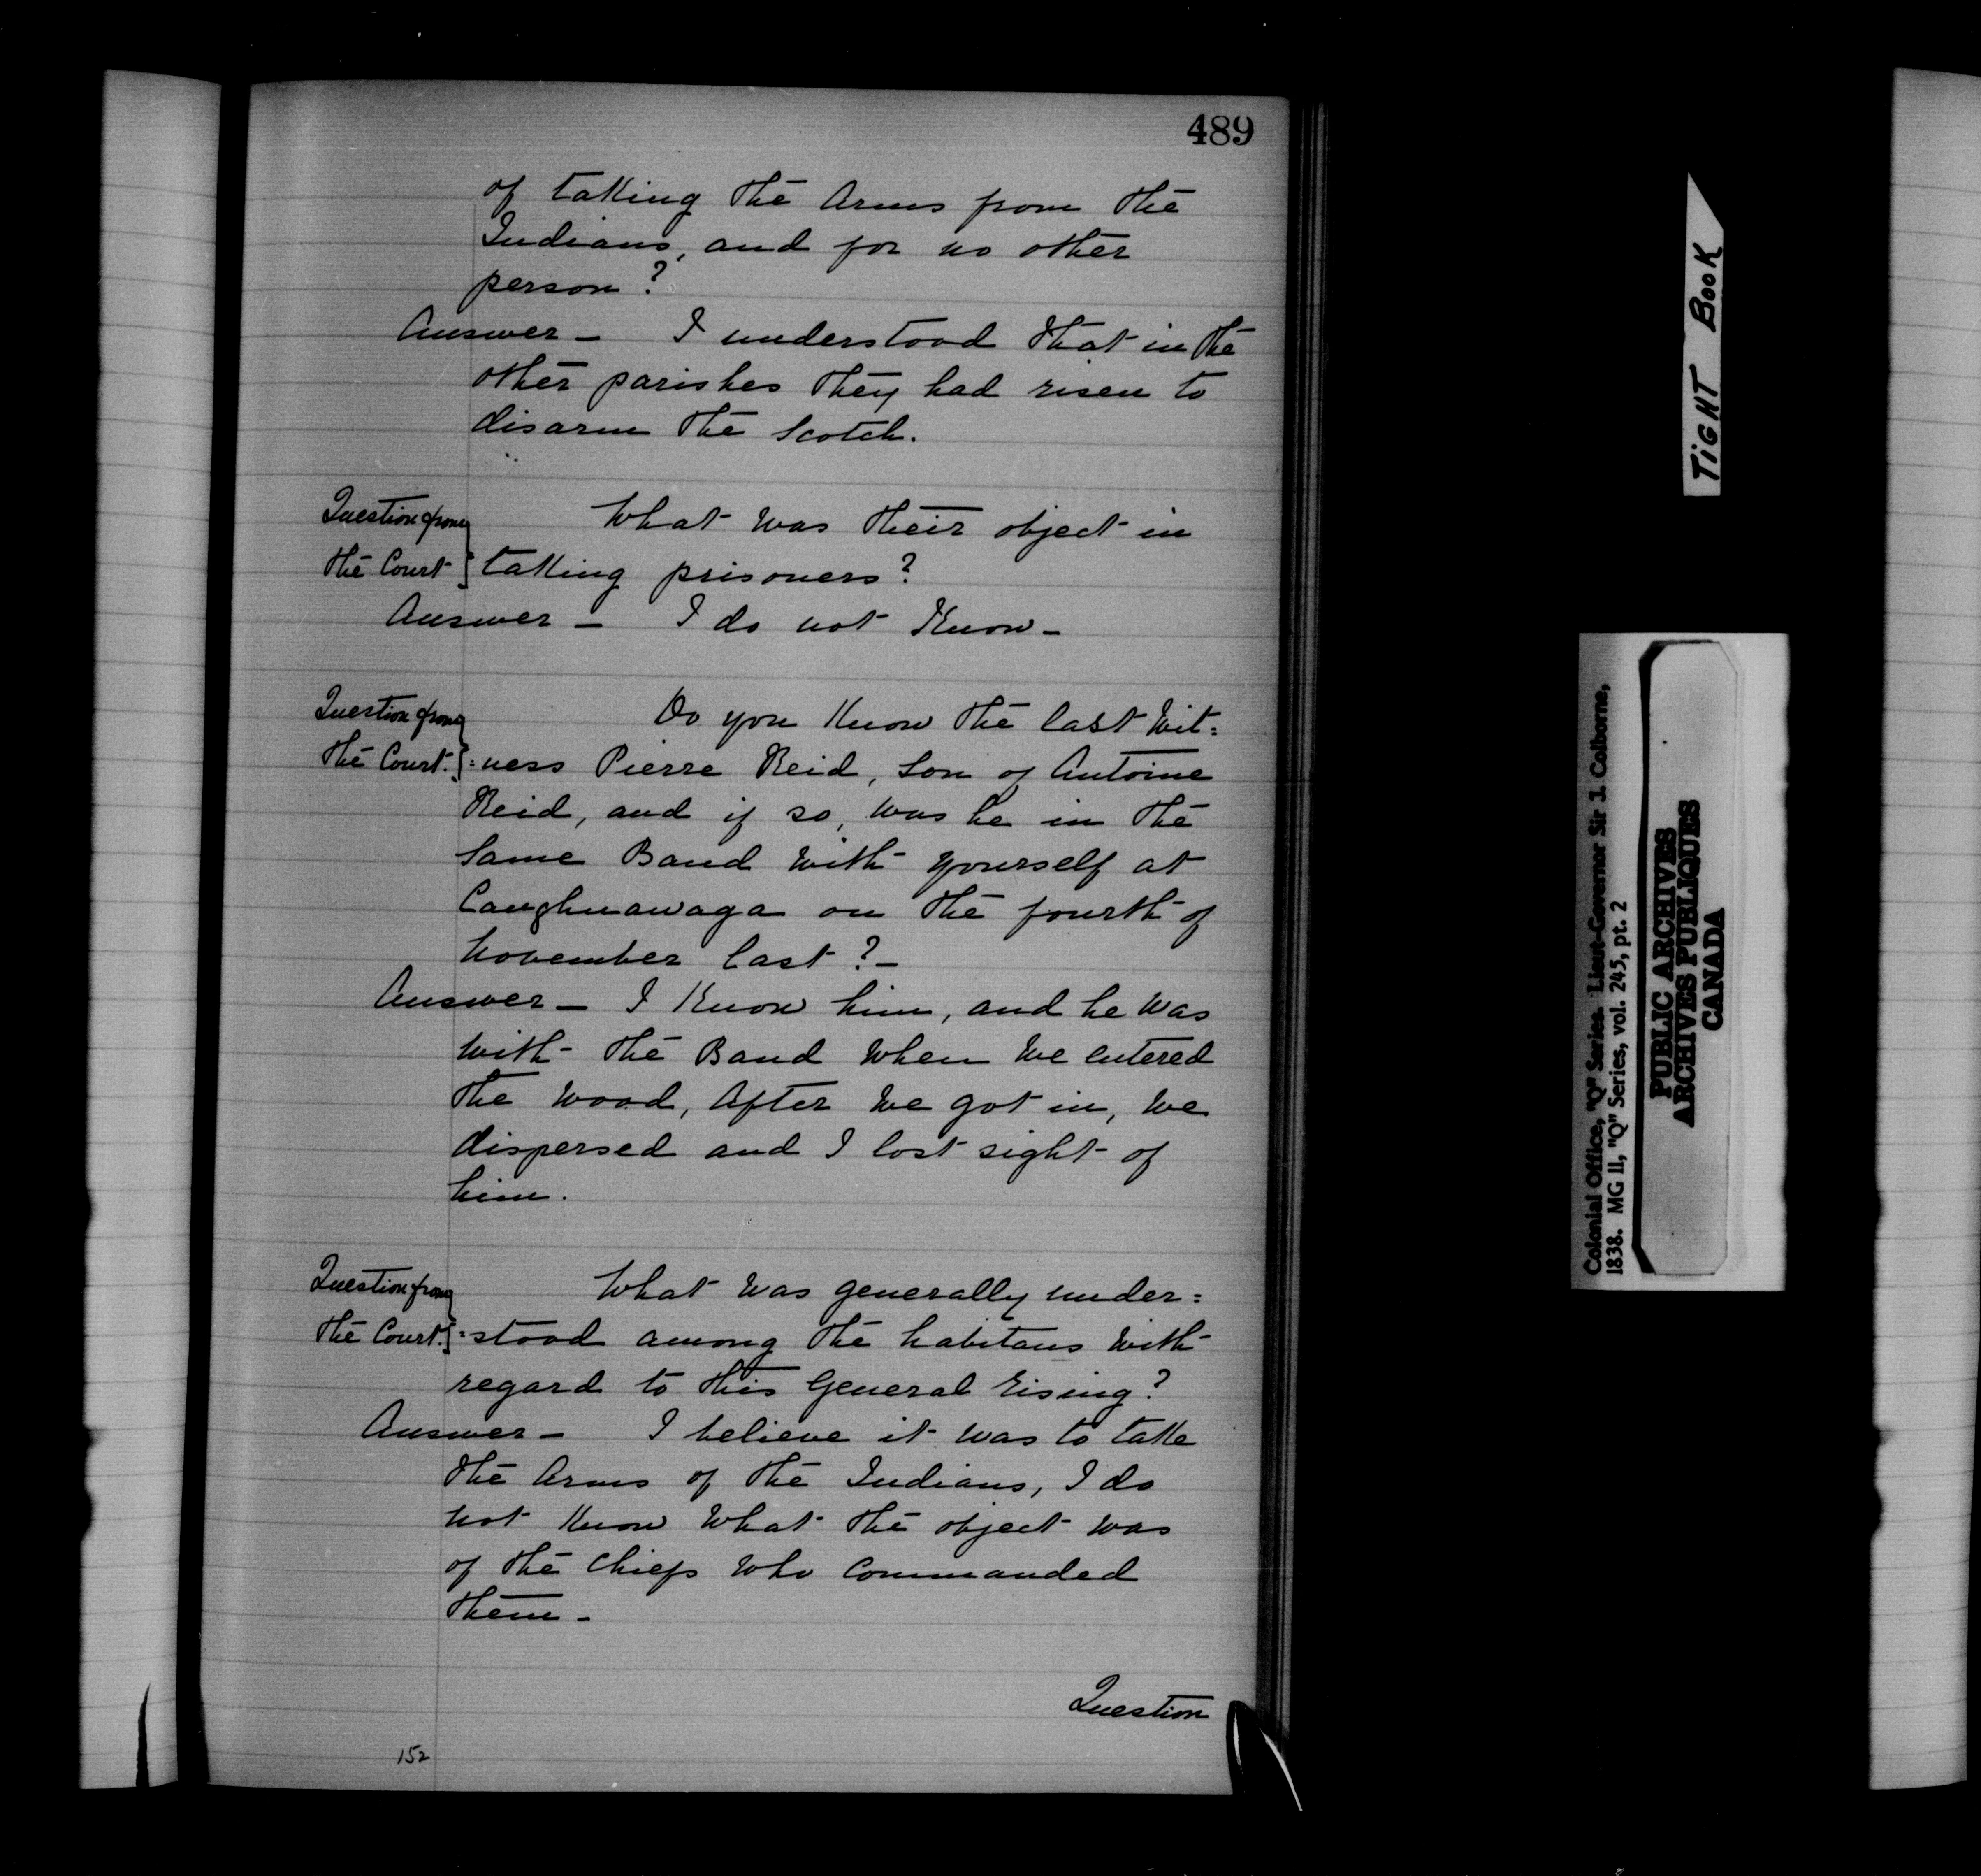 489
of taking the Arms from the
Indians, and for no other
person?
Answer - I understood that in the
other parishes they had risen to
disarm the Scotch.
Question from What was their object in
the Court taking prisoners?
Answer - I do not Know -
Question from Do you Know the last Wit=
the Court. =ness Pierre Reid, Son of Antoine
Reid, and if so, was he in the
Same Band with yourself at
Caughnawaga on the fourth of
November last? -
Answer - I Know him, and he was
with the Band when we entered
the wood, After we got in, we
dispersed and I lost sight of
him.
Question from What was generally under=
the Court. =stood among the habitans with
regard to this General rising?
Answer - I believe it was to take
the Arms of the Indians, I do
not Know what the object was
of the Chiefs who Commanded
them -
Question
152
TIGHT BOOK
Colonial Office, "Q" Series. Lieut-Governor Sir J. Colborne,
1838. MG 11, "Q" Series, vol. 245, pt. 2
PUBLIC ARCHIVES
ARCHIVES PUBLIQUES
CANADA